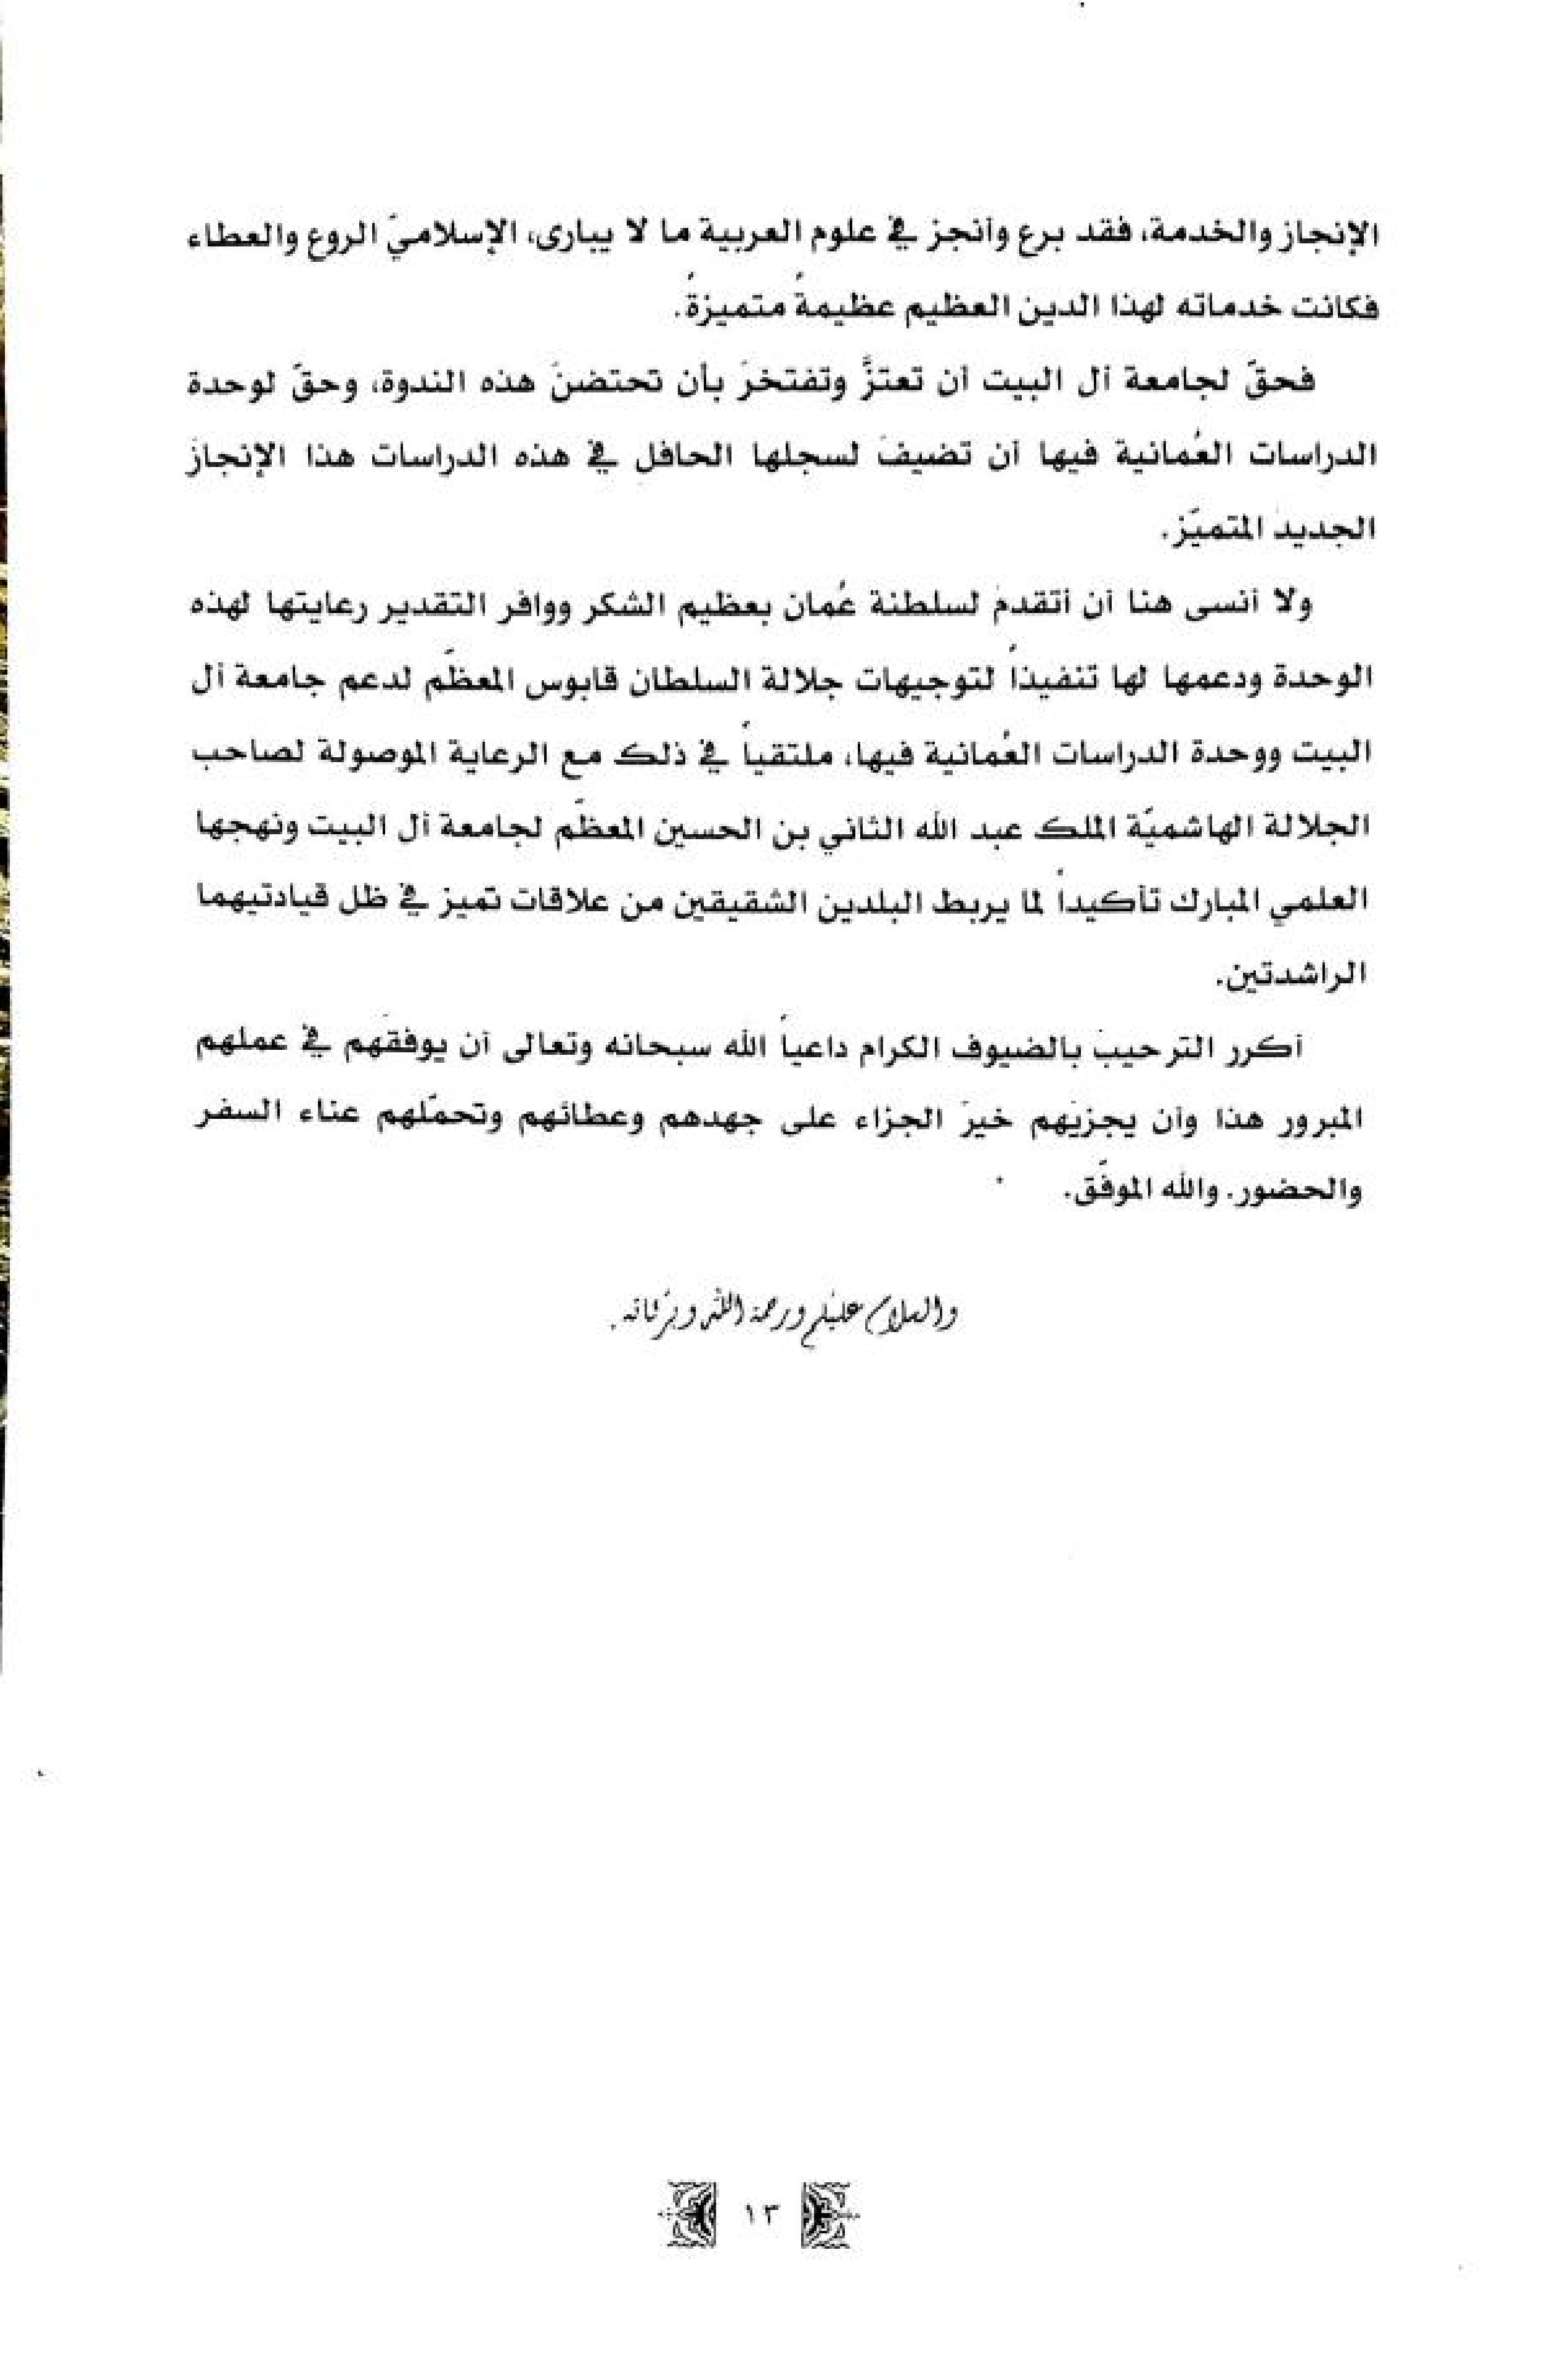 الإنجاز والخدمة، فقد برع وأنجز في علوم العربية ما لا يبارى، الإسلاميّ الروع والعطاء
فكانت خدماته لهذا الدين العظيم عظيمةً متميزةً.
فحقّ لجامعة آل البيت أن تعتزَّ وتفتخرَ بأن تحتضنَ هذه الندوة، وحقّ لوحدة
الدراسات العُمانية فيها أن تضيفَ لسجلها الحافل في هذه الدراسات هذا الإنجازَ
الجديدَ المتميّز.
ولا أنسى هنا أن أتقدمَ لسلطنة عُمان بعظيم الشكر ووافر التقدير رعايتها لهذه
الوحدة ودعمها لها تنفيذاً لتوجيهات جلالة السلطان قابوس المعظّم لدعم جامعة آل
البيت ووحدة الدراسات العُمانية فيها، ملتقياً في ذلك مع الرعاية الموصولة لصاحب
الجلالة الهاشميّة الملك عبد الله الثاني بن الحسين المعظّم لجامعة آل البيت ونهجها
العلمي المبارك تأكيداً لما يربط البلدين الشقيقين من علاقات تميز في ظل قيادتيهما
الراشدتين.
أكرر الترحيبَ بالضيوف الكرام داعياً الله سبحانه وتعالى أن يوفقَهم في عملهم
المبرور هذا وأن يجزيَهم خيرَ الجزاء على جهدهم وعطائهم وتحمّلهم عناء السفر
والحضور. والله الموفّق.
والسلام عليكم ورحمة الله وبركاته.
١٣